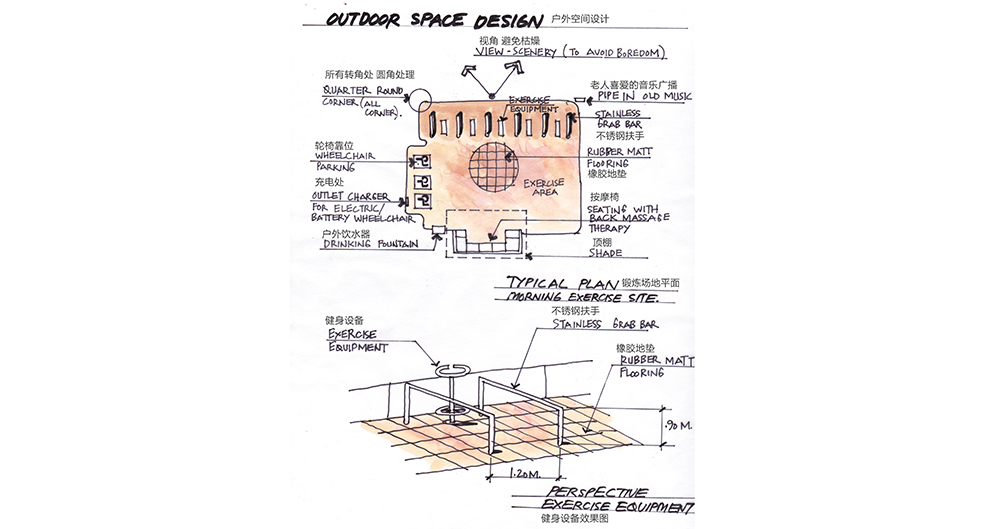 OUTDOOR SPACE DESIGN 户外空间设计
视角 避免枯燥
VIEW-SCENERY (TO AVOID BOREDOM)
所有转角处 圆角处理
QUARTER ROUND
CORNER (ALL
CORNER).
老人喜爱的音乐广播
PIPE IN OLD MUSIC
EXERCISE
EQUIPMENT
STAINLESS
GRAB BAR
不锈钢扶手
轮椅靠位
WHEELCHAIR
PARKING
RUBBER MATT
FLOORING
橡胶地垫
EXERCISE
AREA
充电处
OUTLET CHARGER
FOR ELECTRIC/
BATTERY WHEELCHAIR
按摩椅
SEATING WITH
BACK MASSAGE
THERAPY
户外饮水器
DRINKING FOUNTAIN
顶棚
SHADE
TYPICAL PLAN 锻炼场地平面
MORNING EXERCISE SITE.
不锈钢扶手
STAINLESS GRAB BAR
健身设备
EXERCISE
EQUIPMENT
橡胶地垫
RUBBER MATT
FLOORING
.90 M.
1.20 M.
PERSPECTIVE
EXERCISE EQUIPMENT
健身设备效果图